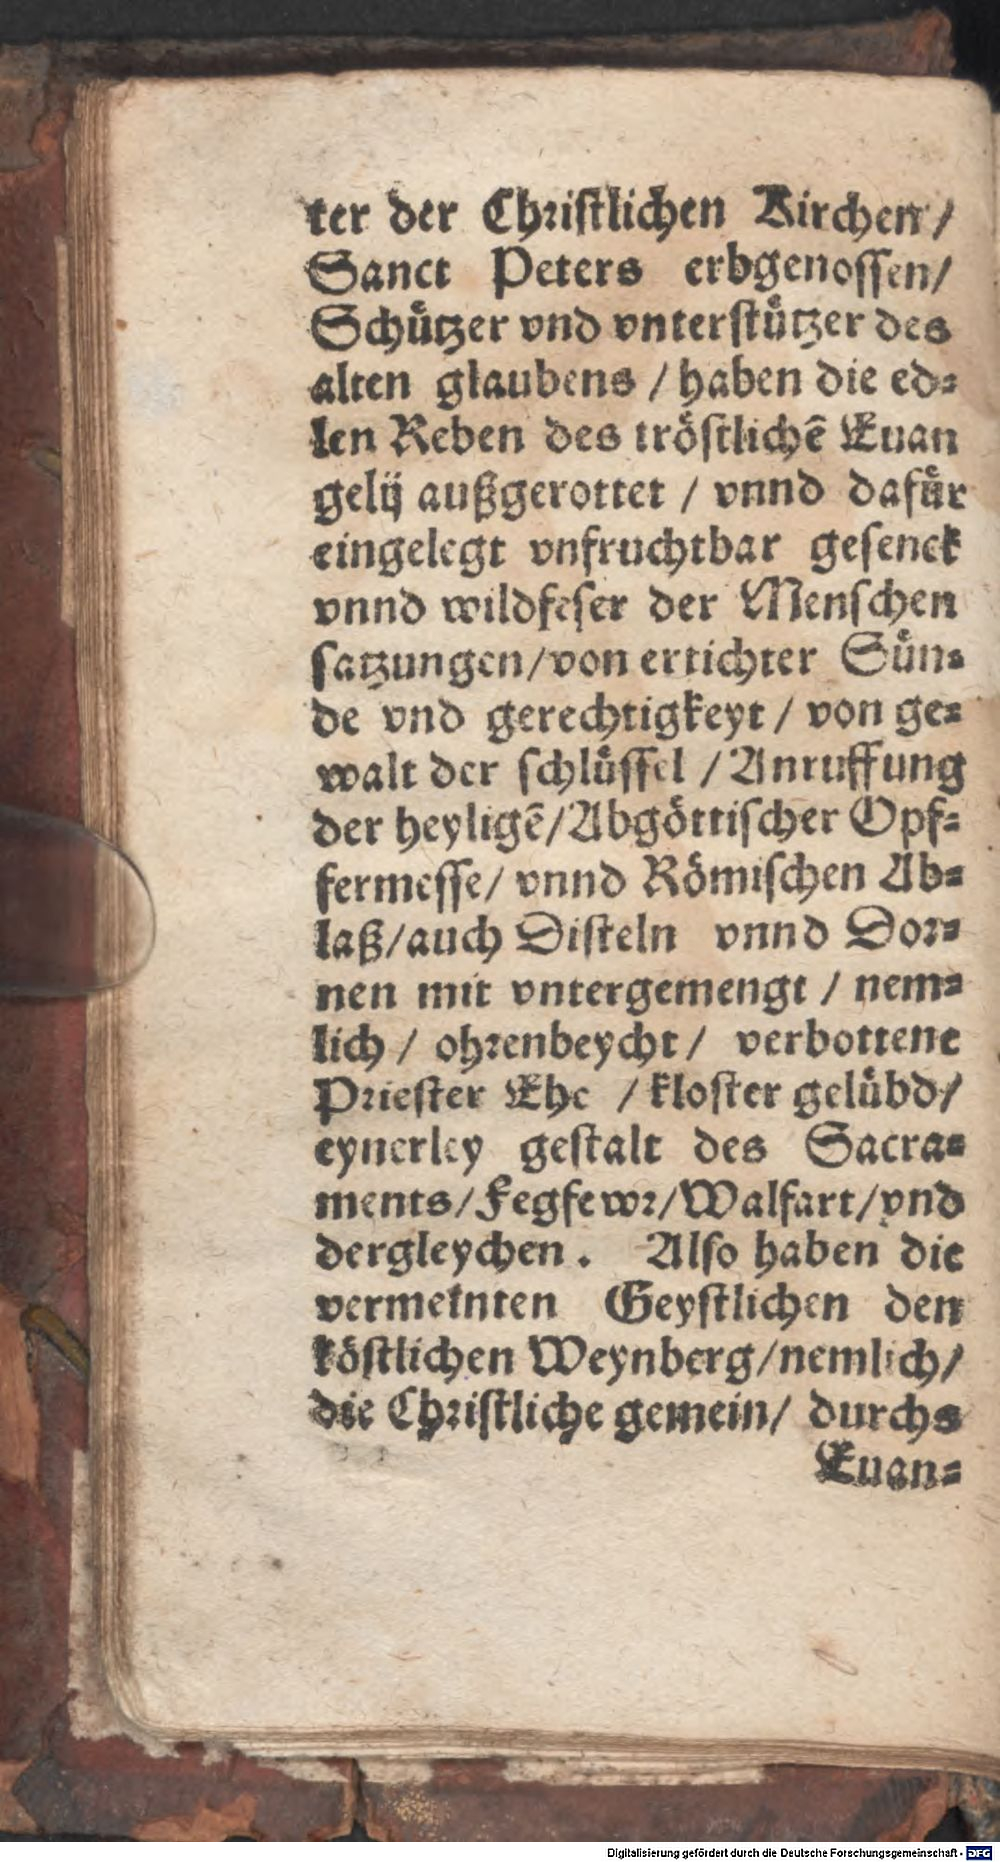 ter der Christlichen Kirchen /
Sanct Peters erbgenossen /
Schuͤtzer vnd vnterstuͤtzer des
alten glaubens / haben die ed⸗
len Reben des troͤstlichē Euan
gelij außgerottet / vnnd dafuͤr
eingelegt vnfruchtbar gesenck
vnnd wildfeser der Menschen
satzungen / von ertichter Suͤn⸗
de vnd gerechtigkeyt / von ge⸗
walt der schluͤssel / Anruffung
der heyligē / Abgoͤttischer Opf⸗
fermesse / vnnd Roͤmischen Ab⸗
laß / auch Disteln vnnd Dor⸗
nen mit vntergemengt / nem⸗
lich / ohrenbeycht / verbottene
Priester Ehe / kloster geluͤbd /
eynerley gestalt des Sacra⸗
ments / Fegfewr / Walfart / vnd
dergleychen . Also haben die
vermeinten Geystlichen den
koͤstlichen Weynberg / nemlich /
die Christliche gemein / durchs
Euan⸗
Digitalisierung gefördert durch die Deutsche Forschungsgemeinschaft - DFG